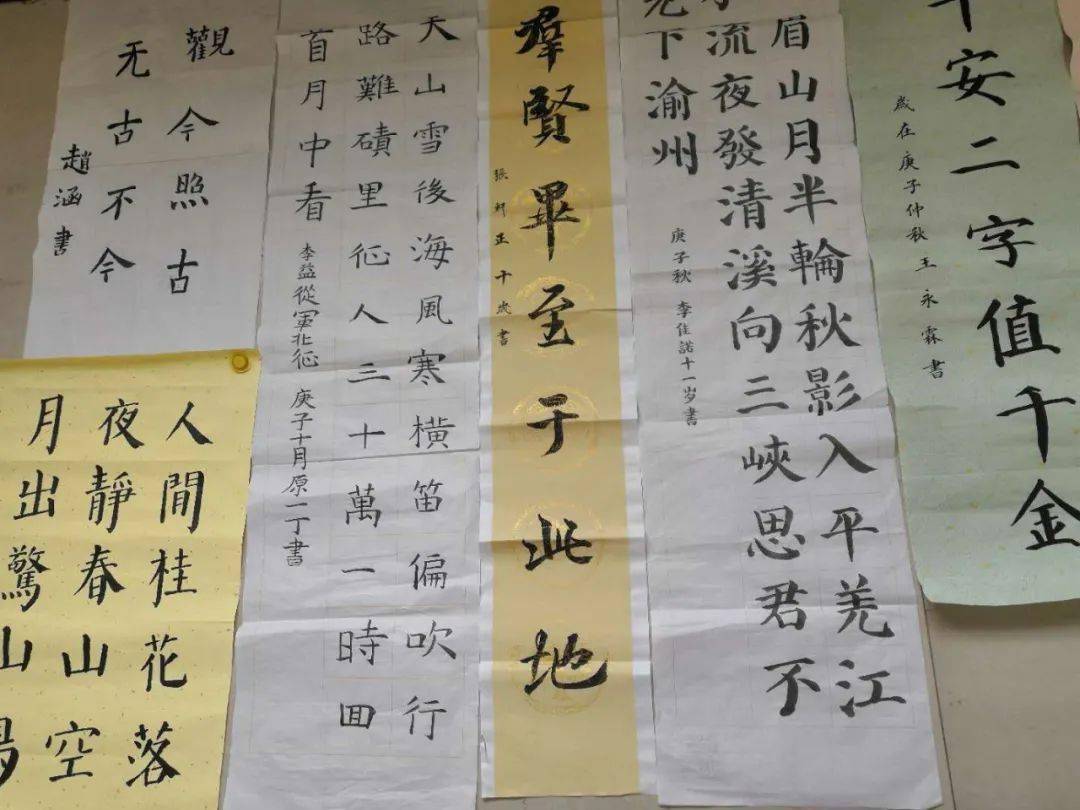 安二字值千金
歲在庚子仲秋王永霖書
眉山月半輪秋影入平羌江
流夜發清溪向三峽思君不
下渝州
庚子秋 李佳諾十一岁書
羣賢畢至于此地
張軒正十歲書
天山雪後海風寒橫笛偏吹行
路難磧里征人三十萬一時回
首月中看
李益從軍北征 庚子十月原一丁書
觀今照古
无古不今
趙涵書
人間桂花落
夜靜春山空
月出驚山